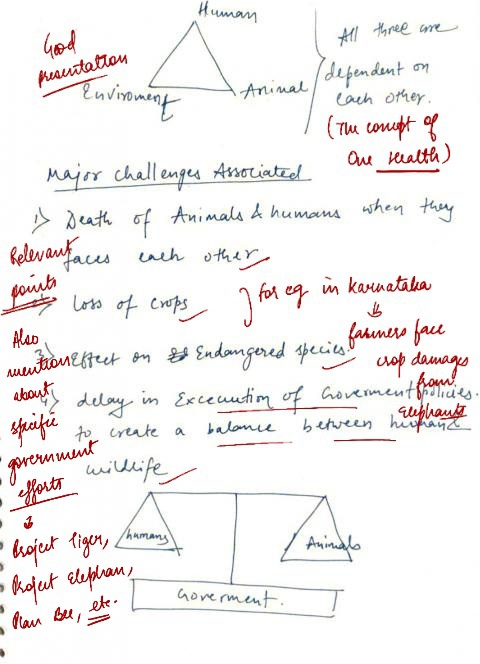 Human
Good
presentation
Enviroment
Animal
All three are
dependent on
each other.
(The concept of
One Health)
Major challenges Associated
1) Death of Animals & humans when they
faces each other
Relevant
points
2) loss of crops
for eg in Karnataka
farmers face
crop damages
from
Elephants
3) Effect on Endangered species.
4) delay in Excecution of Goverment policies.
to create a balance between human &
wildlife
Also
mention
about
specific
government
efforts
Project Tiger,
Project Elephan,
Plan Bee, etc.
humans
Animals
Goverment.